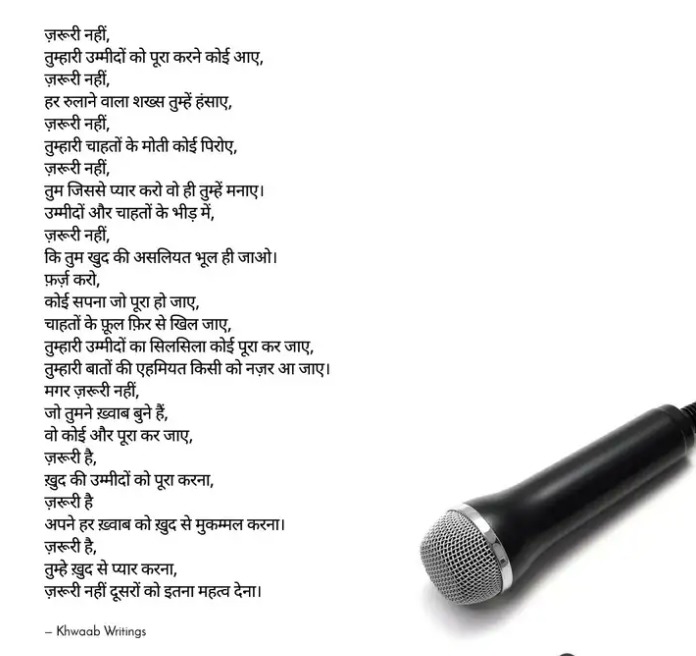 ज़रूरी नहीं,
तुम्हारी उम्मीदों को पूरा करने कोई आए,
ज़रूरी नहीं,
हर रुलाने वाला शख्स तुम्हें हंसाए,
ज़रूरी नहीं,
तुम्हारी चाहतों के मोती कोई पिरोए,
ज़रूरी नहीं,
तुम जिससे प्यार करो वो ही तुम्हें मनाए।
उम्मीदों और चाहतों के भीड़ में,
ज़रूरी नहीं,
कि तुम खुद की असलियत भूल ही जाओ।
फ़र्ज़ करो,
कोई सपना जो पूरा हो जाए,
चाहतों के फ़ूल फ़िर से खिल जाए,
तुम्हारी उम्मीदों का सिलसिला कोई पूरा कर जाए,
तुम्हारी बातों की एहमियत किसी को नज़र आ जाए।
मगर ज़रूरी नहीं,
जो तुमने ख़्वाब बुने हैं,
वो कोई और पूरा कर जाए,
ज़रूरी है,
ख़ुद की उम्मीदों को पूरा करना,
ज़रूरी है
अपने हर ख़्वाब को ख़ुद से मुकम्मल करना।
ज़रूरी है,
तुम्हे ख़ुद से प्यार करना,
ज़रूरी नहीं दूसरों को इतना महत्व देना।
– Khwaab Writings